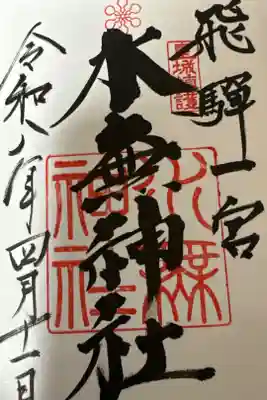 飛驒一宮
水無神社
水無神社
令和八年四月十一日